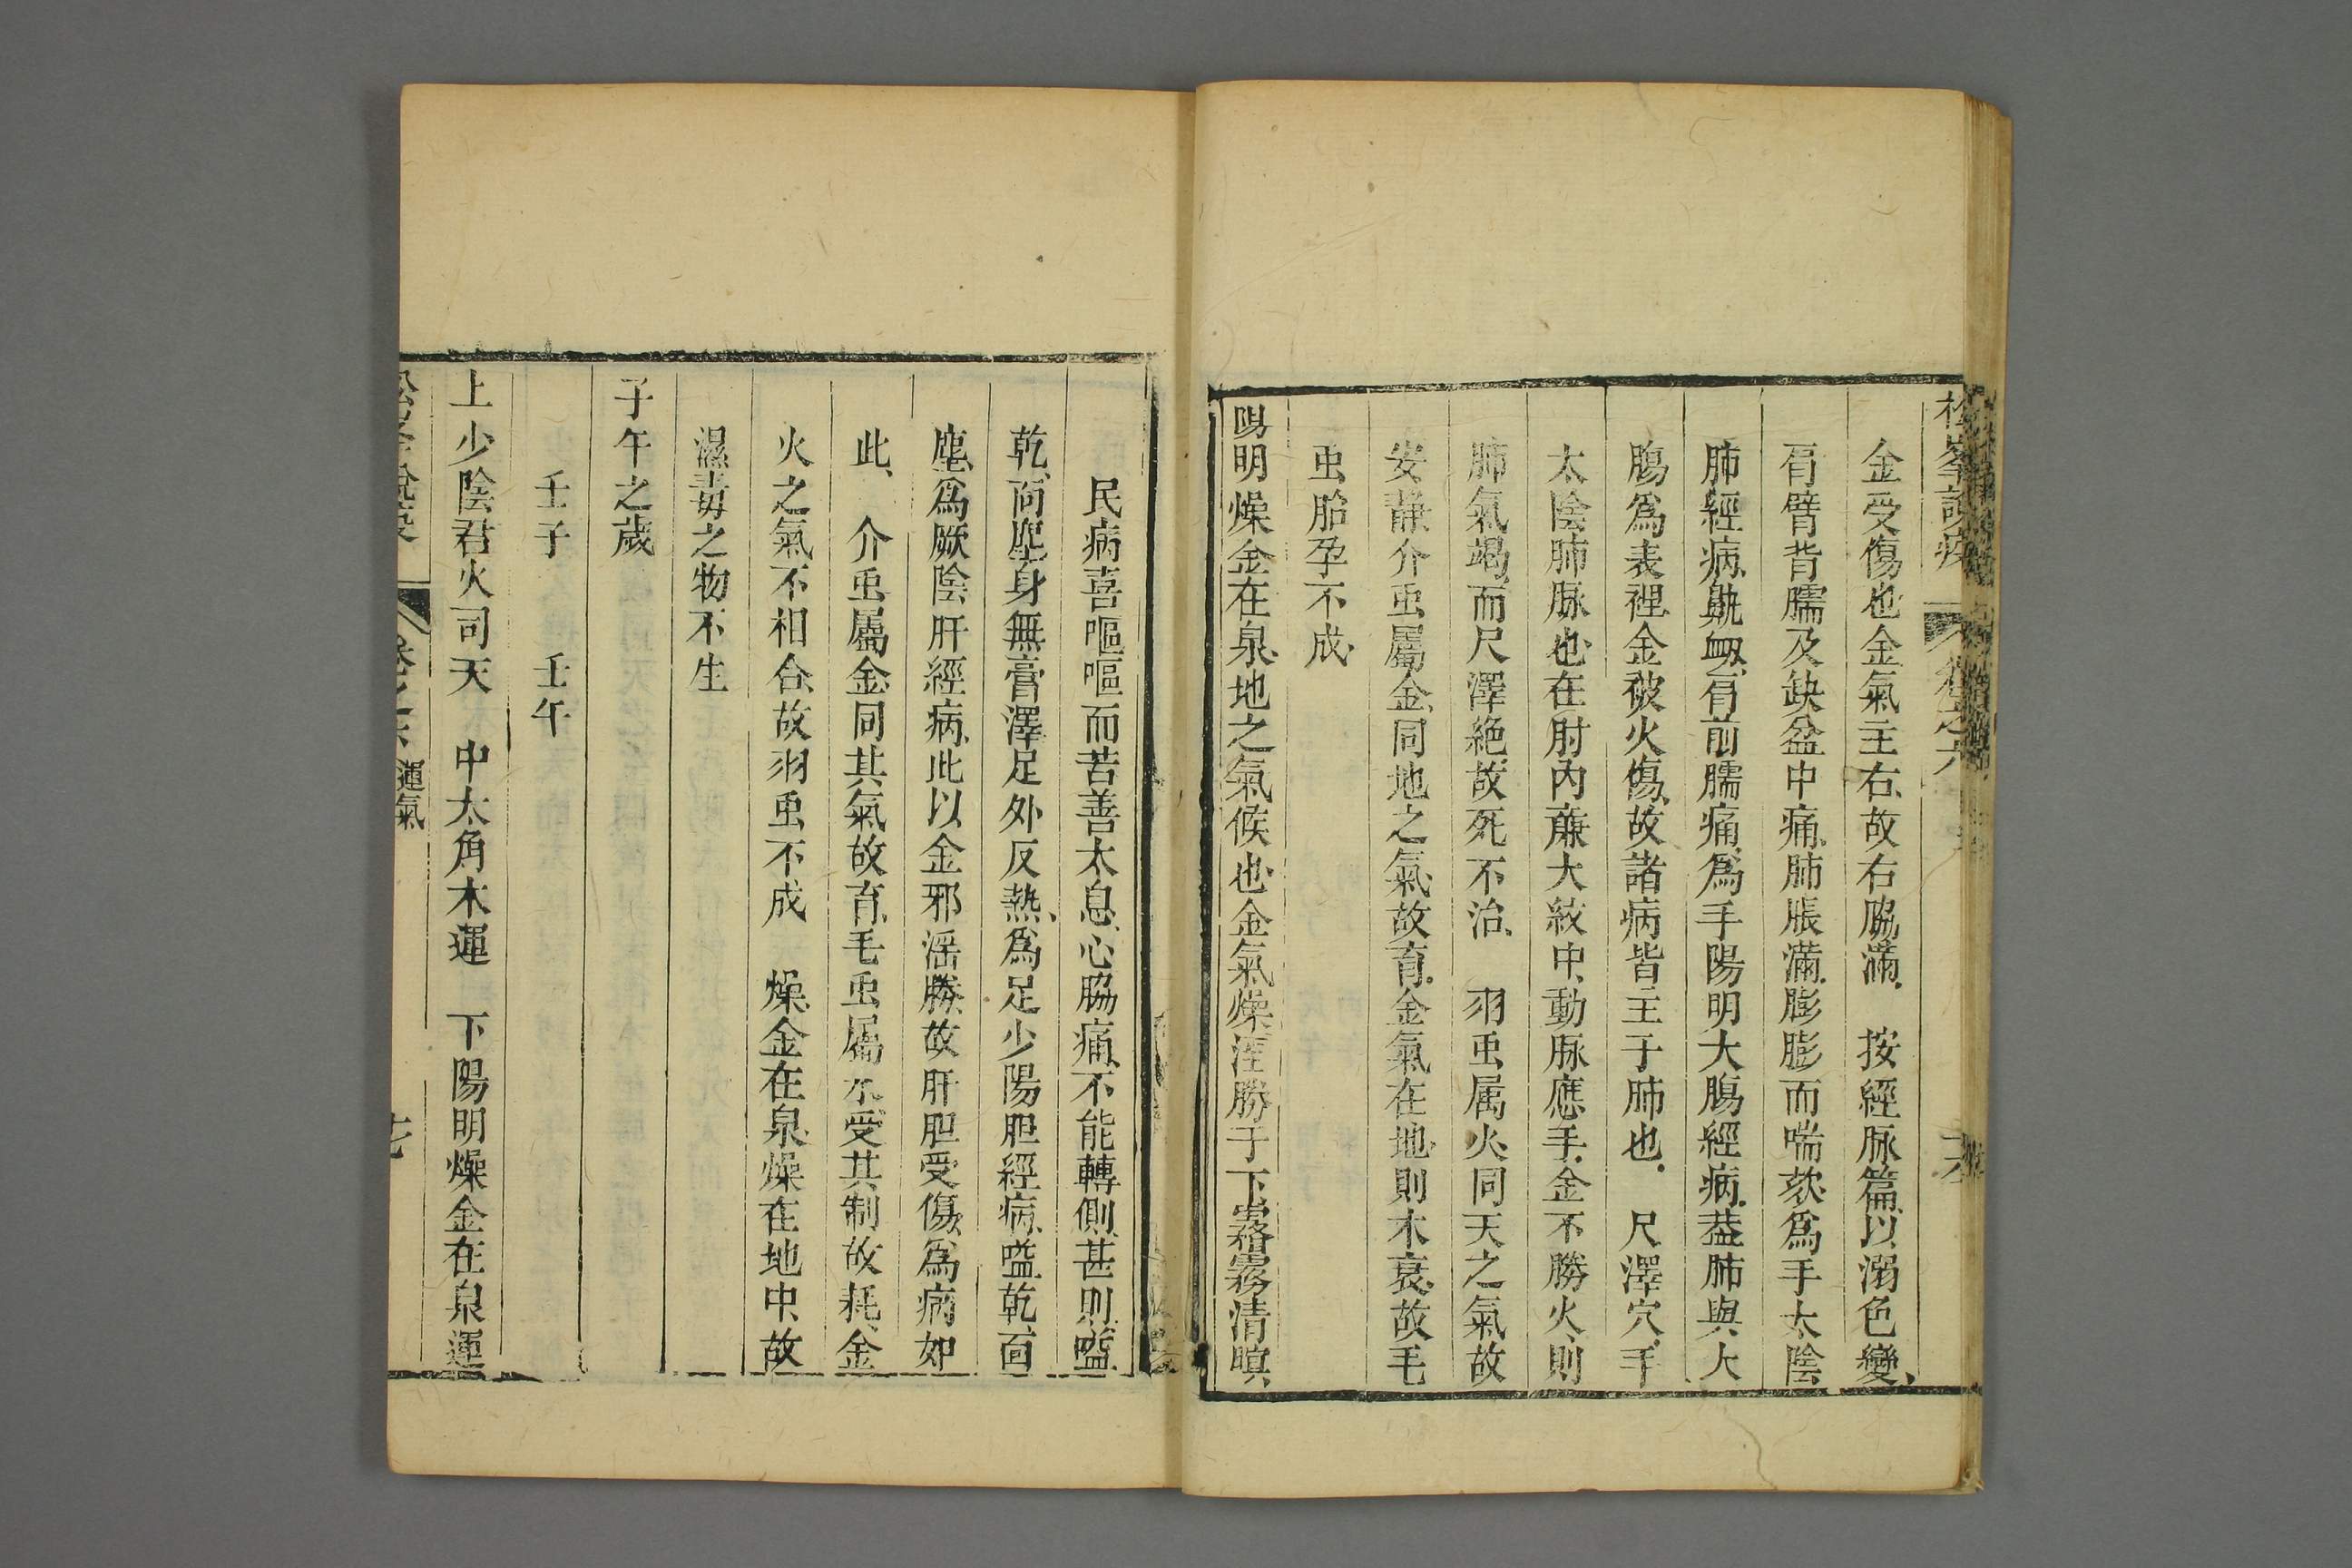 松峯說疫 卷之六
金受傷也金氣主右故右脇滿 按經脉篇以溺色變
肩臂背臑及缺盆中痛肺脹滿膨膨而喘欬爲手太陰
肺經病鼽衂肩前臑痛爲手陽明大腸經病葢肺與大
腸爲表裡金被火傷故諸病皆主于肺也 尺澤穴手
太陰肺脉也在肘內廉大紋中動脉應手金不勝火則
肺氣竭而尺澤絶故死不治 羽虫属火同天之氣故
安靜介虫屬金同地之氣故育金氣在地則木衰故毛
虫胎孕不成
陽明燥金在泉地之氣候也金氣燥淫勝于下霿霧清暝
民病喜嘔嘔而苦善太息心脇痛不能轉側甚則嗌
乾面塵身無膏澤足外反熱爲足少陽胆經病嗌乾面
塵爲厥陰肝經病此以金邪淫勝故肝胆受傷爲病如
此 介虫屬金同其氣故育毛虫屬木受其制故耗金
火之氣不相合故羽虫不成 燥金在泉燥在地中故
濕毒之物不生
子午之歲
壬子 壬午
上少陰君火司天 中太角木運 下陽明燥金在泉運
松峯說疫 卷之六 運氣 十七